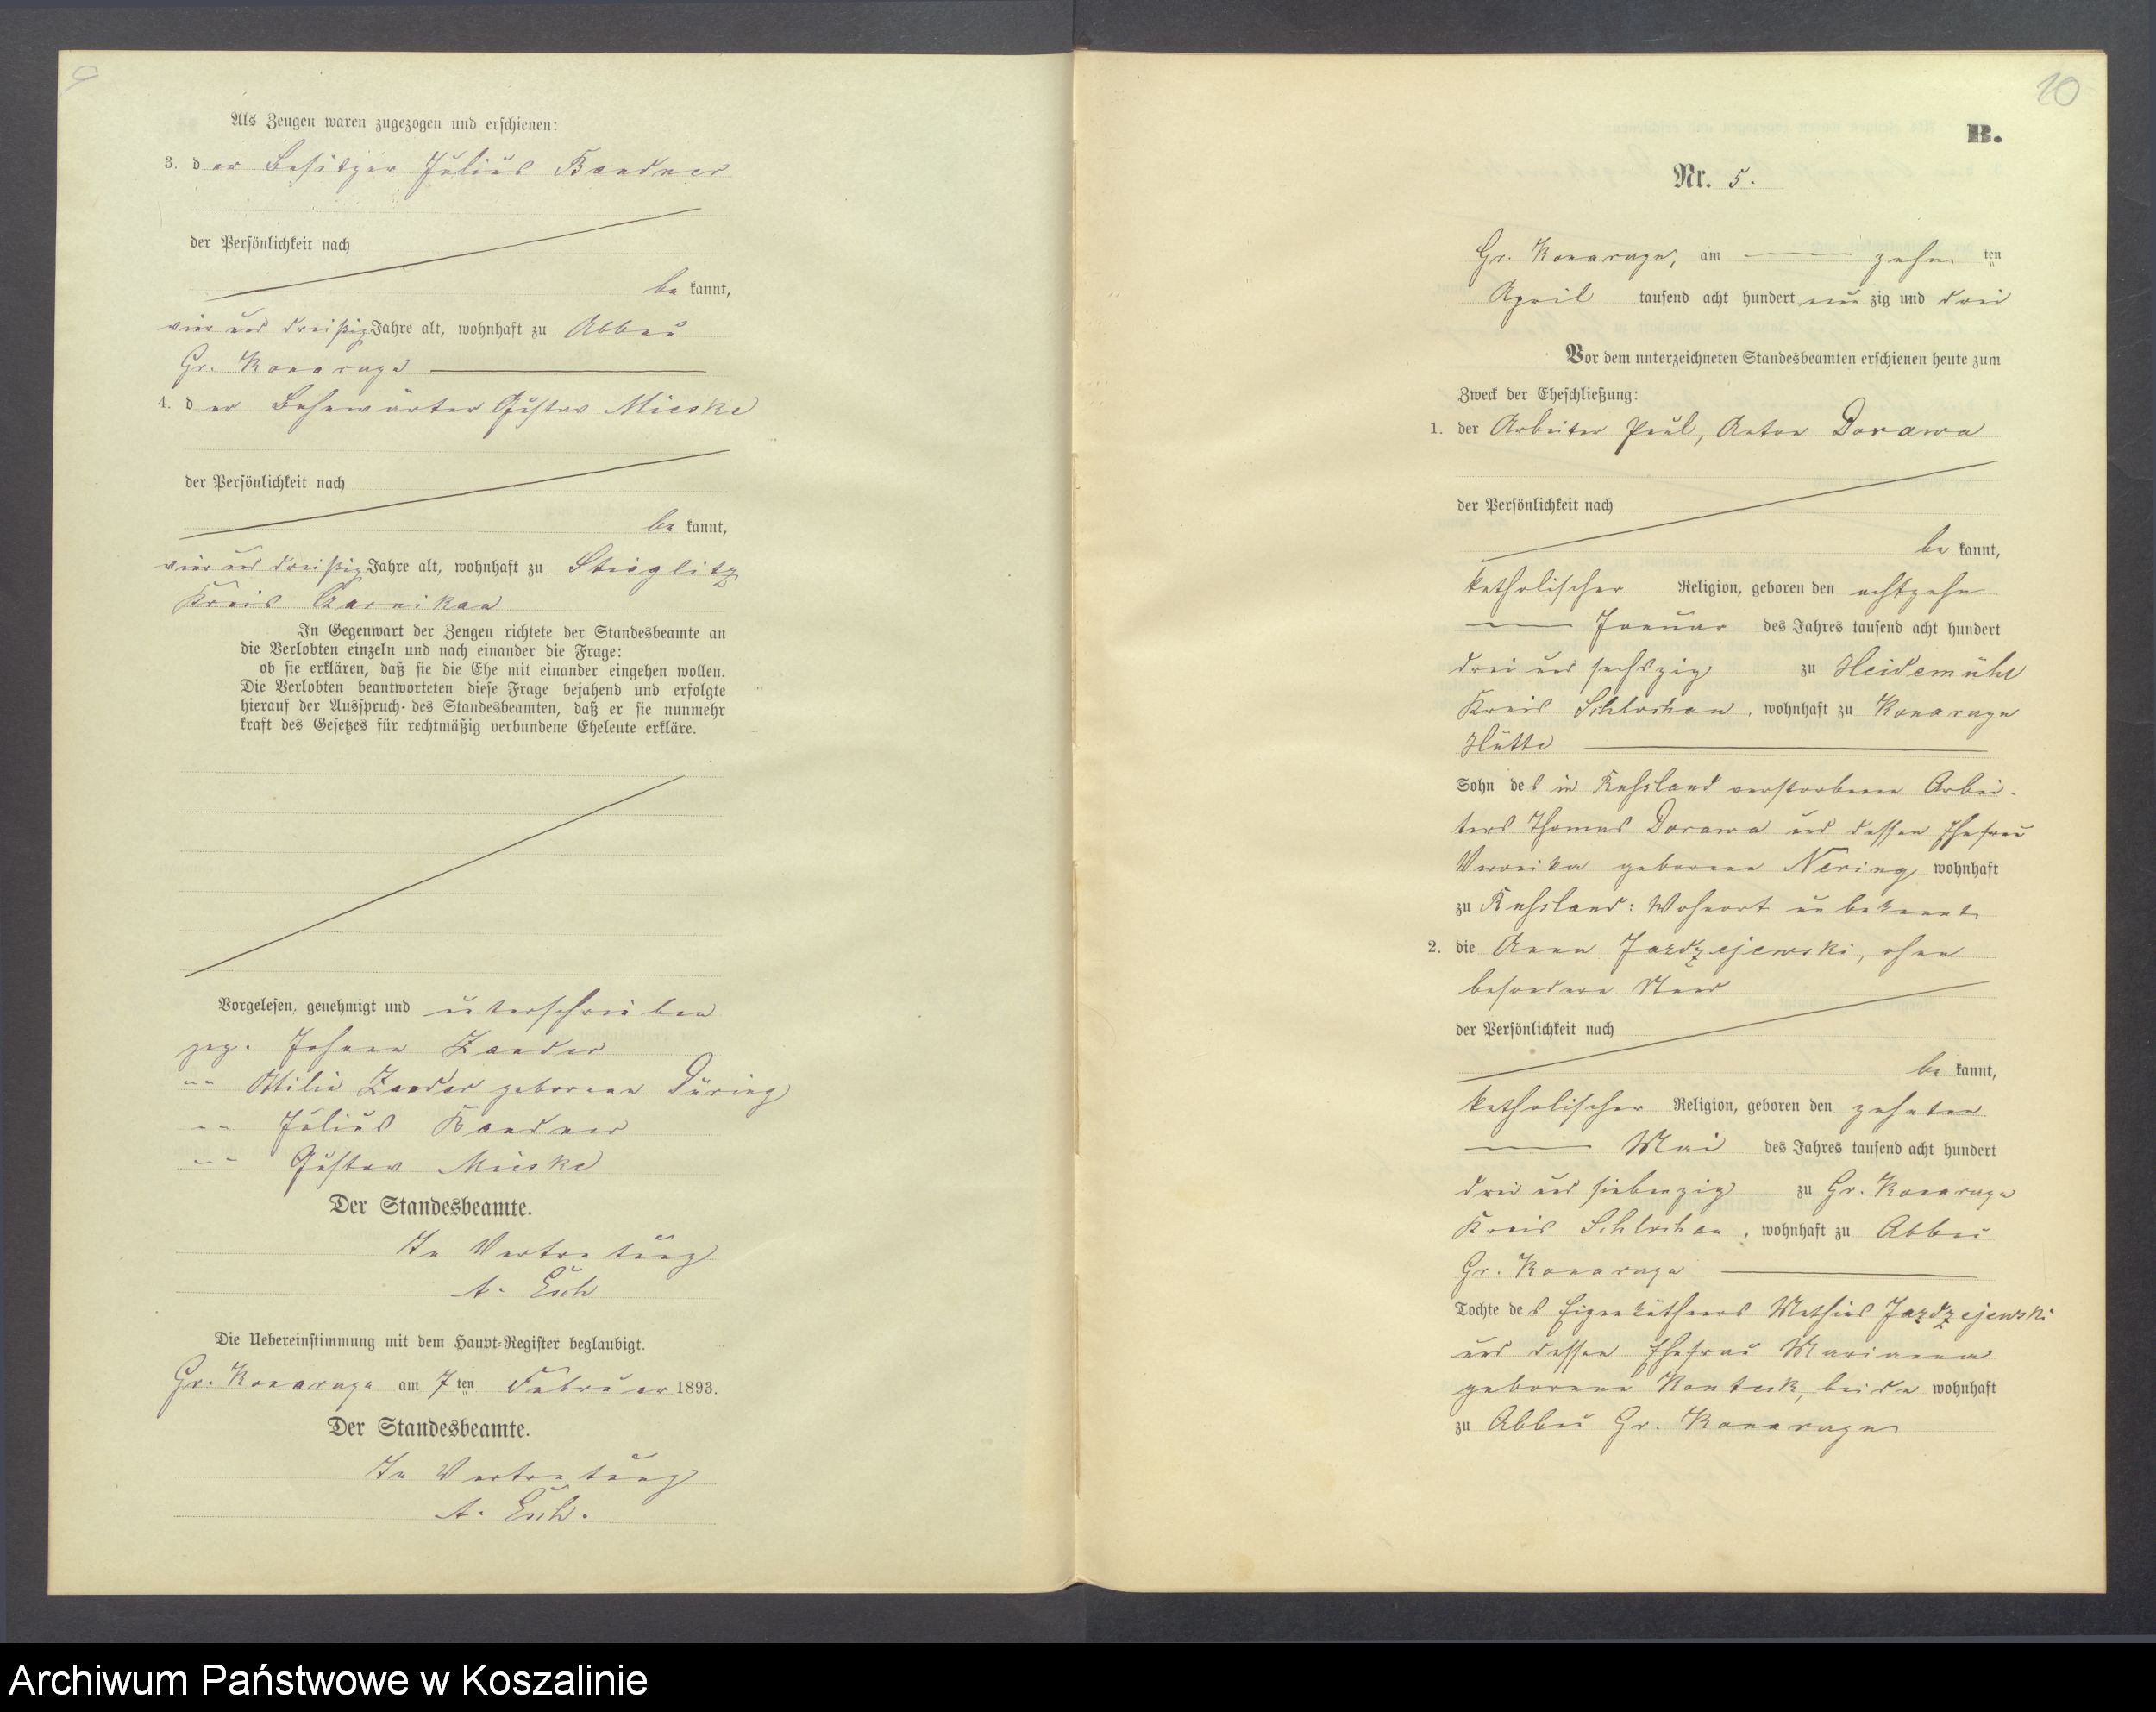 9
Als Zeugen waren zugezogen und erschienen:
3. der Besitzer Julius Bandner
der Persönlichkeit nach
be kannt,
vier und dreißig Jahre alt, wohnhaft zu Abbau
Gr. Konarzyn
4. der Bahnwärter Gustav Mieske
der Persönlichkeit nach
be kannt,
vier und dreißig Jahre alt, wohnhaft zu Stieglitz
Kreis Czarnikau
In Gegenwart der Zeugen richtete der Standesbeamte an
die Verlobten einzeln und nach einander die Frage:
ob sie erklären, daß sie die Ehe mit einander eingehen wollen.
Die Verlobten beantworteten diese Frage bejahend und erfolgte
hierauf der Ausspruch des Standesbeamten, daß er sie nunmehr
kraft des Gesetzes für rechtmäßig verbundene Eheleute erkläre.
Vorgelesen, genehmigt und unterschrieben
gez. Johann Zander
"" Ottilie Zander geborene Düring
"" Julius Bandner
"" Gustav Mieske
Der Standesbeamte.
In Vertretung
A. Esch
Die Uebereinstimmung mit dem Haupt-Register beglaubigt.
Gr. Konarzyn am 7 ten Februar 1893.
Der Standesbeamte.
In Vertretung
A. Esch.
10
B.
Nr. 5.
Gr. Konarzyn, am zehn ten
April tausend acht hundert neun zig und drei
Vor dem unterzeichneten Standesbeamten erschienen heute zum
Zweck der Eheschließung:
1. der Arbeiter Paul, Anton Dorawa
der Persönlichkeit nach
be kannt,
katholischer Religion, geboren den achtzehn
Januar des Jahres tausend acht hundert
drei und sechszig zu Heidemühl
Kreis Schlochau, wohnhaft zu Konarzyn
Hütte
Sohn des in Russland verstorbenen Arbei-
ters Thomas Dorawa und dessen Ehefrau
Veronika geborene Nering wohnhaft
zu Russland: Wohnort unbekannt
2. die Anna Jazdzejewski, ohne
besondern Stand
der Persönlichkeit nach
be kannt,
katholischer Religion, geboren den zehnten
Mai des Jahres tausend acht hundert
drei und siebenzig zu Gr. Konarzyn
Kreis Schlochau, wohnhaft zu Abbau
Gr. Konarzyn
Tochte des Eigenkäthners Mathias Jazdzejewski
und dessen Ehefrau Marianna
geborene Kantak, beide wohnhaft
zu Abbau Gr. Konarzyn
Archiwum Państwowe w Koszalinie